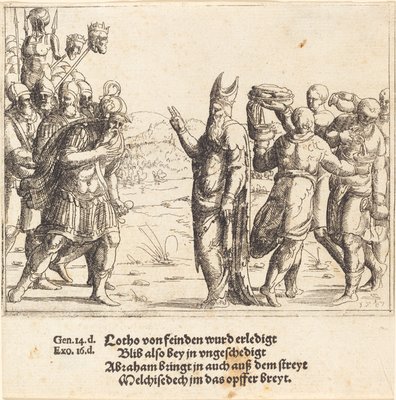 Gen.14.d. Lotho von feinden wurd erledigt
Exo.16.d. Blib also bey in vngeschedigt
Abraham bringt in auch auß dem streyt
Melchisedech im das opffer breyt.